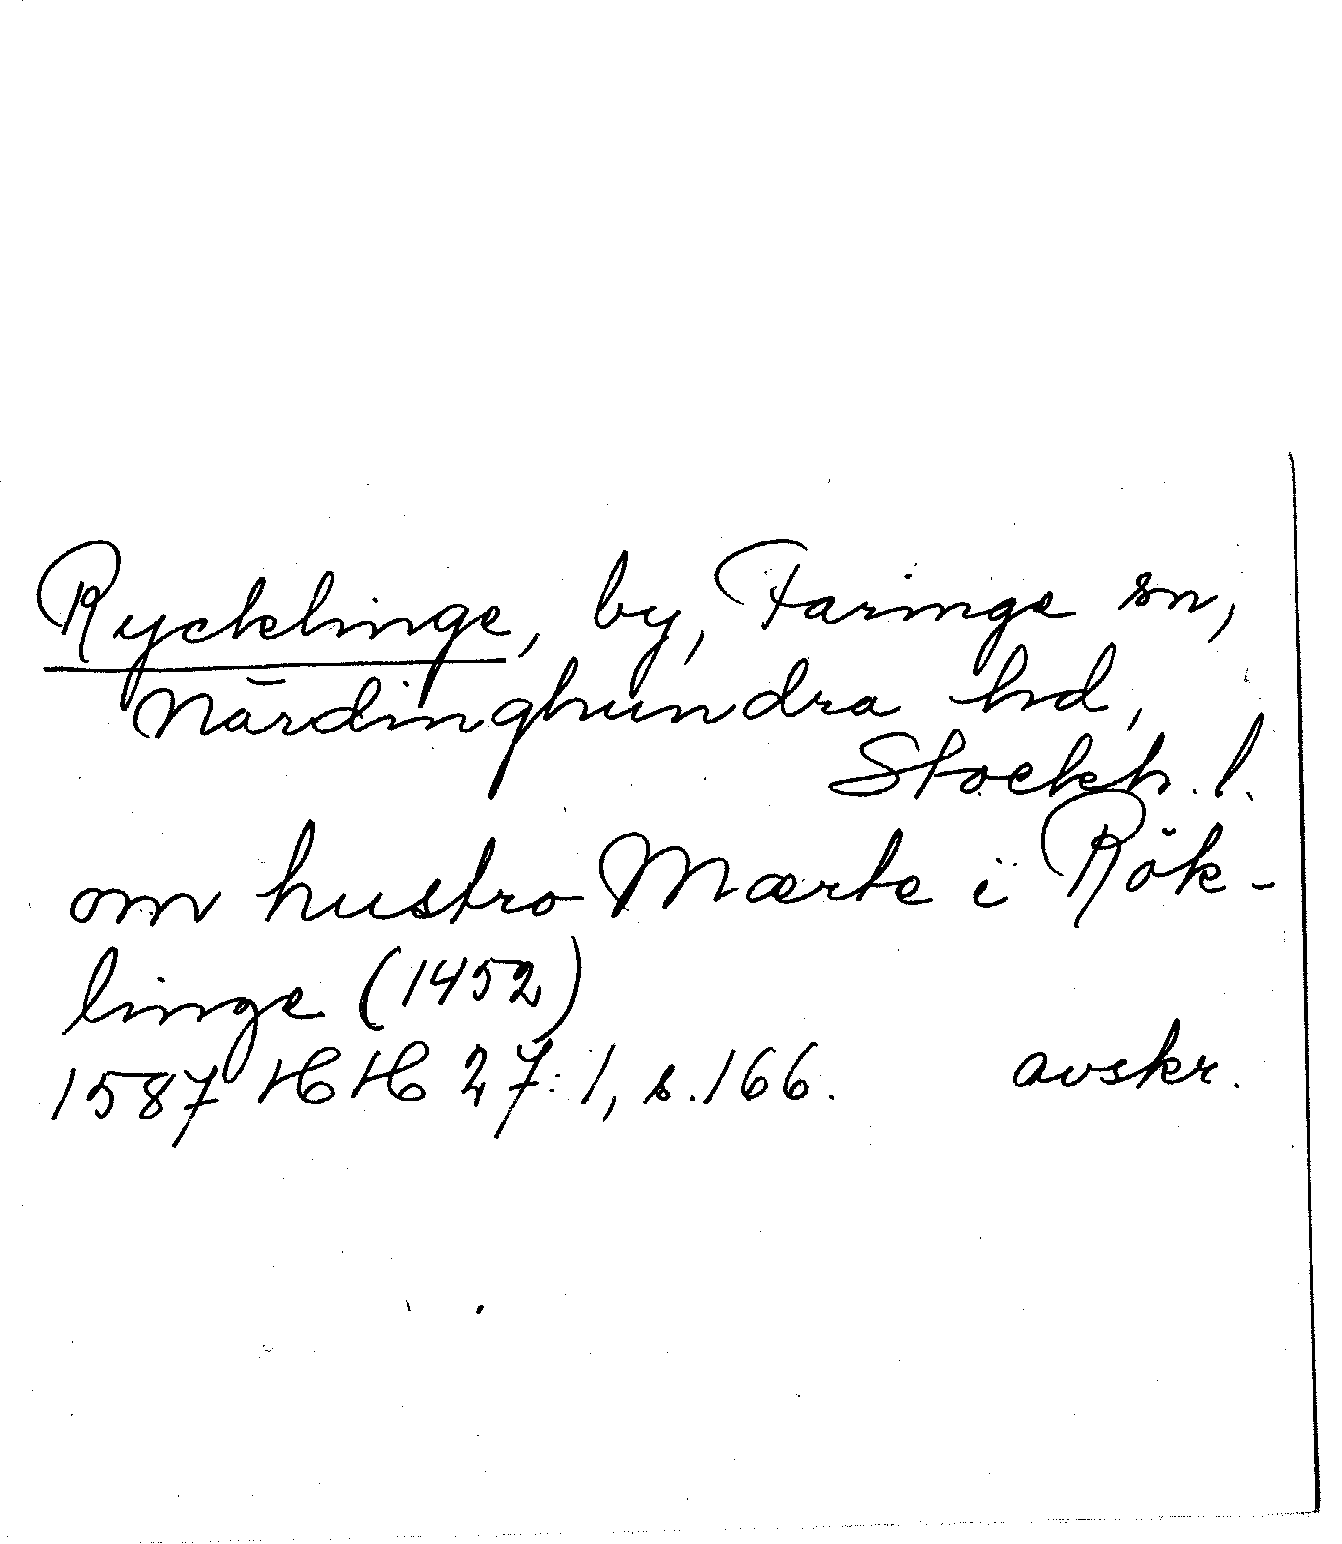 Rycklinge, by, Faringe sn,
Närdinghundra hd,
Stockh. l.
om hustro Mærte i Rök-
linge (1452)
1587 HH 27:1, s. 166. avskr.